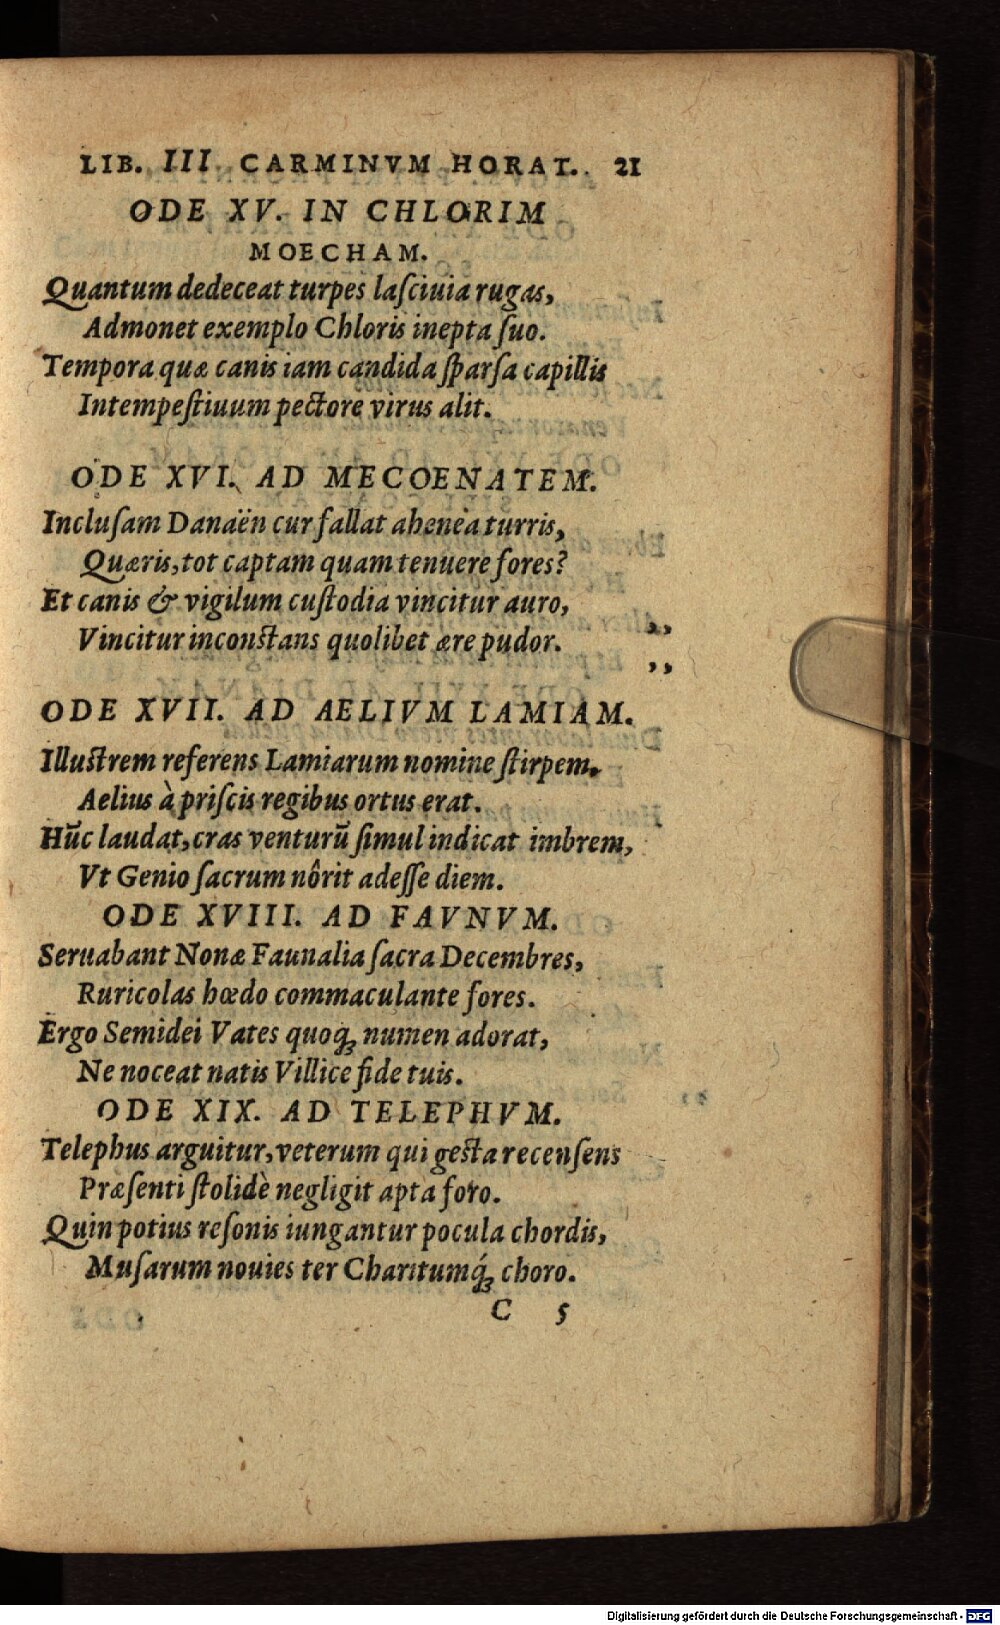 LIB. III CARMINVM HORAT. 21
ODE XV. IN CHLORIM
MOECHAM.
Quantum dedeceat turpes laſciuia rugas,
Admonet exemplo Chloris inepta ſuo.
Tempora quæ canis iam candida ſparſa capillis
Intempeſtiuum pectore virus alit.
ODE XVI. AD MECOENATEM.
Incluſam Danaën cur fallat ahenea turris,
Quæris, tot captam quam tenuere fores?
Et canis & vigilum cuſtodia vincitur auro, ,,
Vincitur inconſtans quolibet ære pudor. ,,
ODE XVII. AD AELIVM LAMIAM.
Illuſtrem referens Lamiarum nomine ſtirpem.
Aelius à priſcis regibus ortus erat.
Hūc laudat, cras venturū ſimul indicat imbrem,
Vt Genio ſacrum nôrit adeſſe diem.
ODE XVIII. AD FAVNVM.
Seruabant Nonæ Faunalia ſacra Decembres,
Ruricolas hœdo commaculante fores.
Ergo Semidei Vates quoq; numen adorat,
Ne noceat natis Villice fide tuis.
ODE XIX. AD TELEPHVM.
Telephus arguitur, veterum qui geſta recenſens
Præſenti ſtolidè negligit apta foro.
Quin potius reſonis iungantur pocula chordis,
Muſarum nouies ter Charitumq́; choro.
C 5
Digitalisierung gefördert durch die Deutsche Forschungsgemeinschaft - DFG